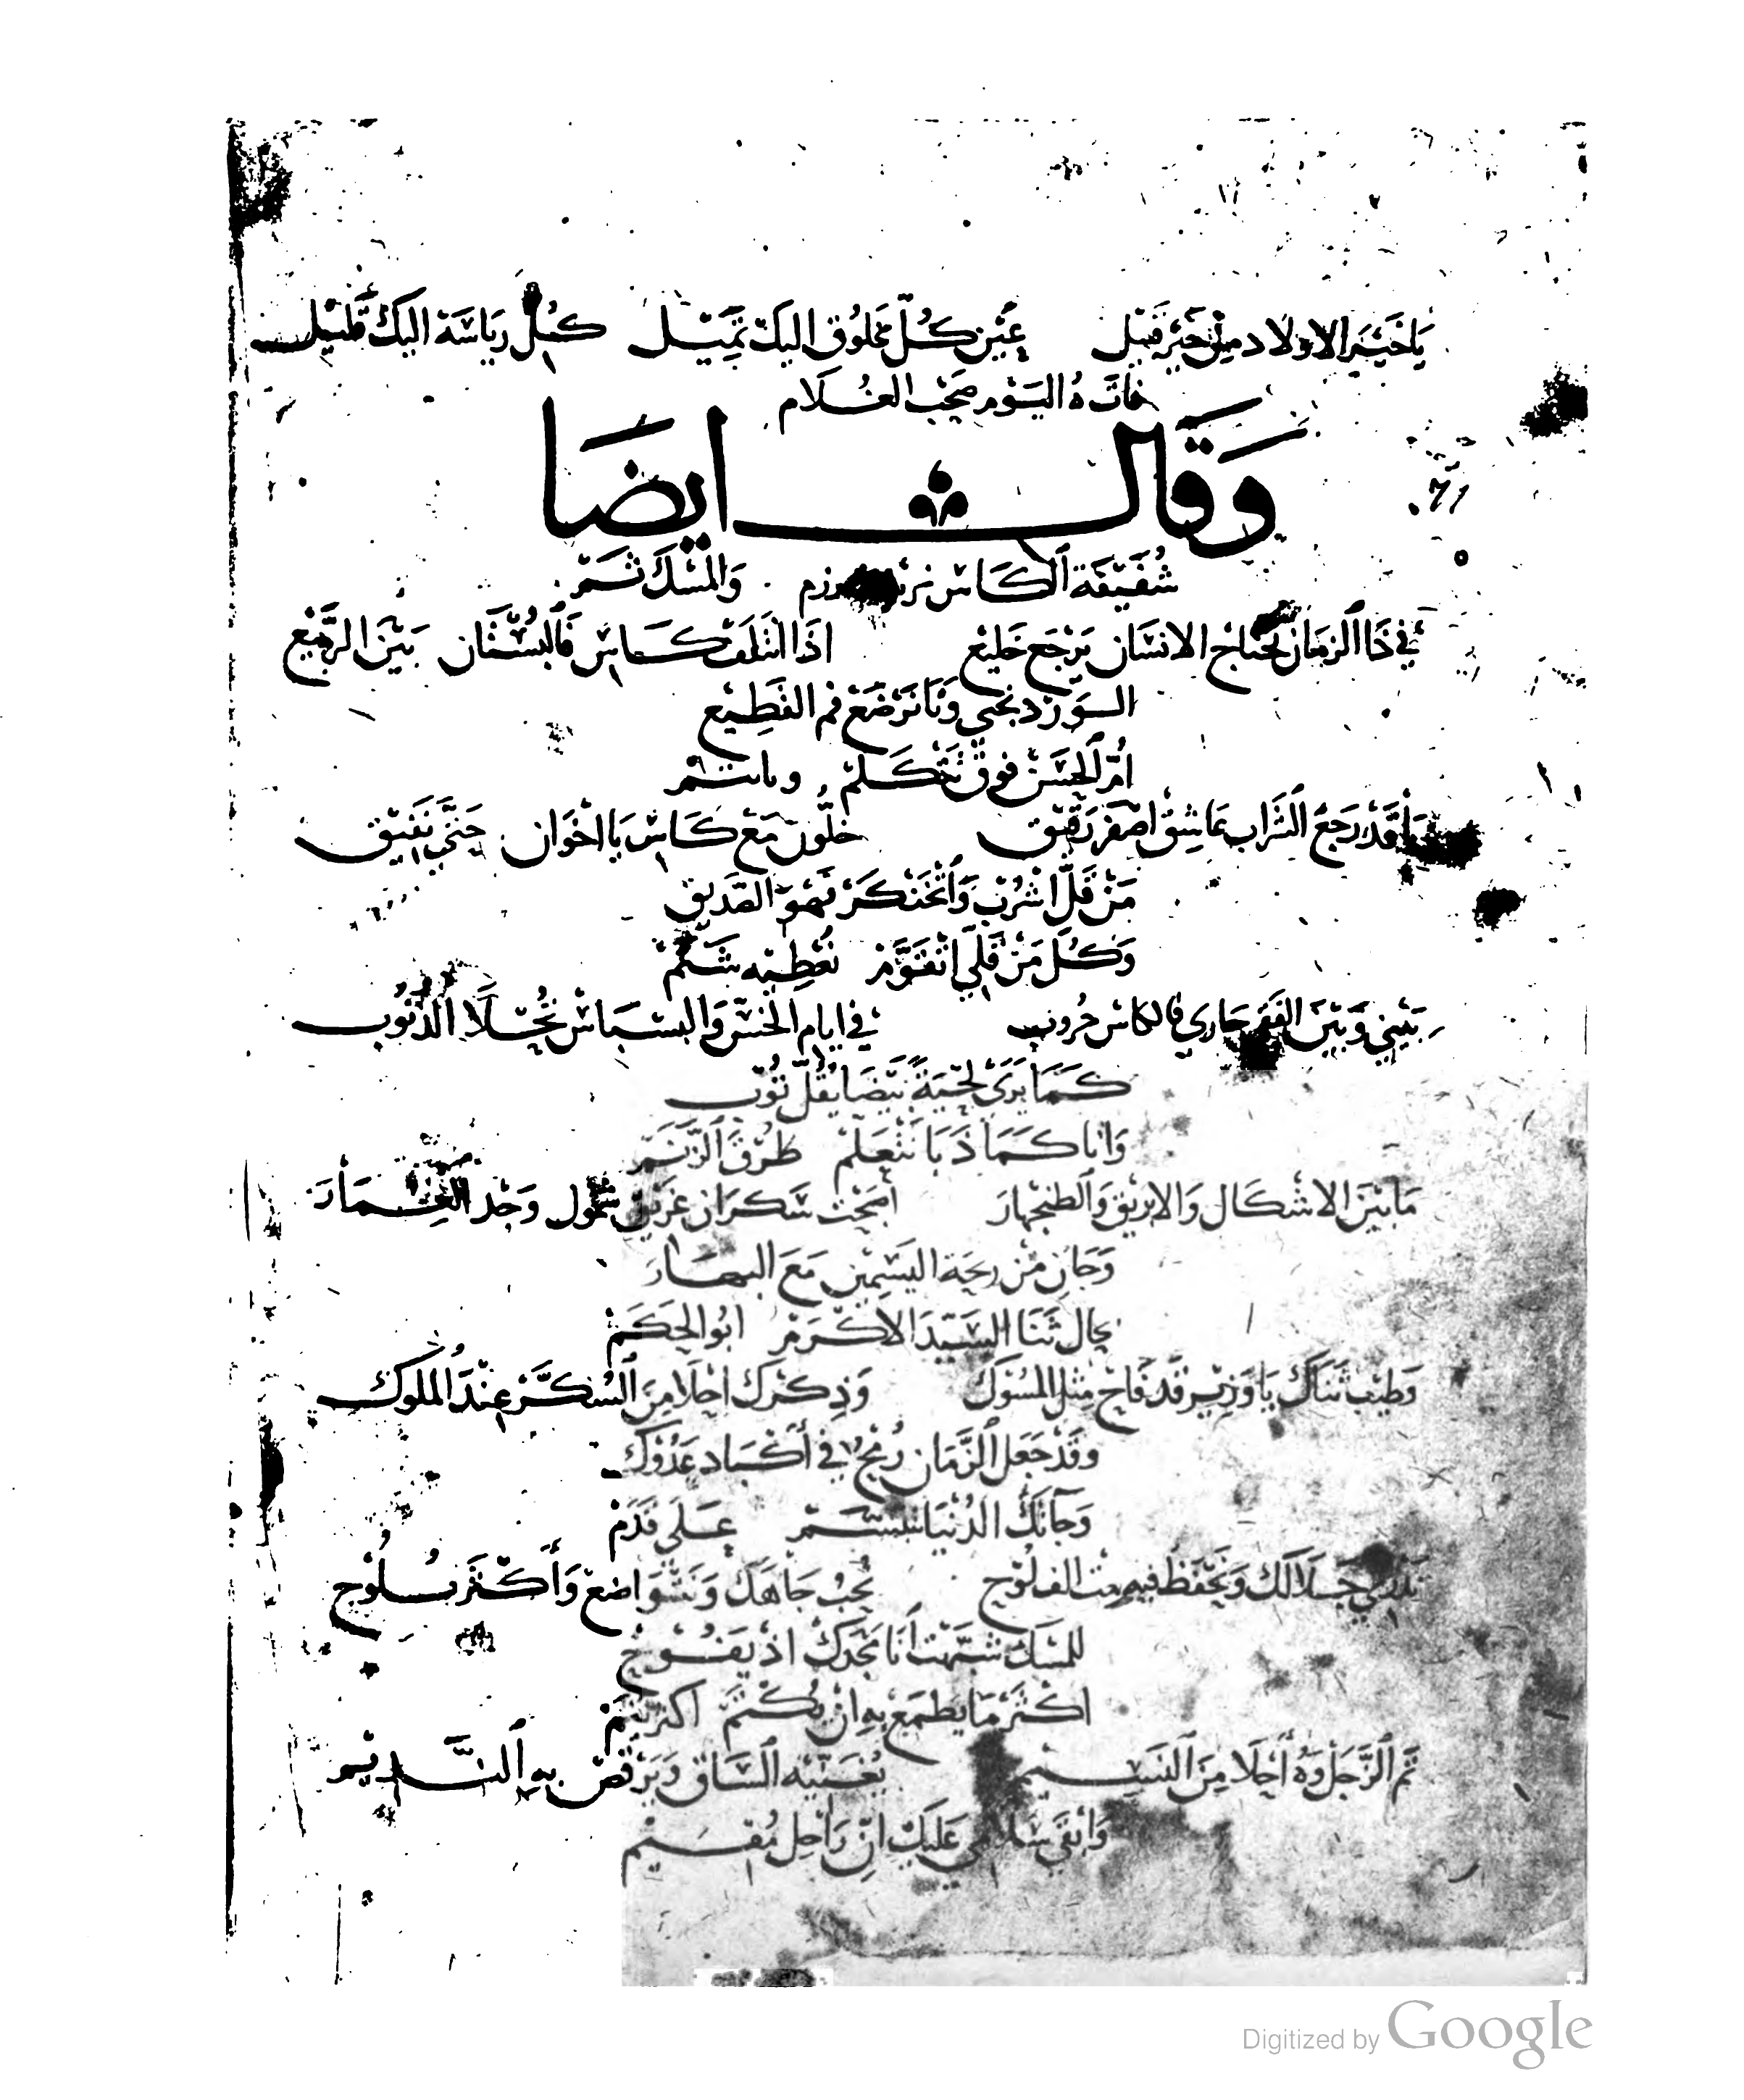 يَا خَيْرَ الاولاد من خَيْر قبيل عَيْن كُلّ مخلُوق اليك تَمِيل كُلّ رِيَاسَة اليك قليل
فاتَ هُ اليَوْم صَحْب الغُلَام
وَقَالَ ايضَا
71
شُفَيْفَة الكَاس وَالمسْك ثَمّ
في ذَا الزمَان يَحتاج الانسَان يَرْجَع خَليع اذَا كَاس فَالبُسْتَان بَيْن الرَّبيع
الوَرْد نجني وَنَا نَرْضَعْ فم القَطِيع
امُّ الحسَن فوق تَتْكَلّم
قَدْ رَجَعْ الشَّراب عَاشِقْ اصْفَر رَقيق خلُّون مَعْ كَاسْ يَا اخْوَان حَتَّى نَفِيق
مَنْ قَلّ اشْرَبْ وَاتْخَنكَرْ فَهو الصّديق
وَكُل مَنْ قَلِّي اتْقَوَّمْ نُعْطِيه شَتْم
بَيْني وَبَيْن الفَقر جَاري فالكاس حُروب في ايام الخسّ وَالبسْبَاسْ تُحْلَا الذُّنُوب
كَمَا يَرَى لحْيَةً بَيْضَا يقُلّ تُوب
وَانا كَمَا ذَبَا نَتْعَلّمْ طُرْق الزَّنم
مَا بَيْنَ الاشكَال وَالابريق وَالطنجهار اصْبَحْت سَكرَان غَرْيق شمُول وَجْد
وَجَان مِنْ رِيحَة اليَسَمِين مَعَ البهَار
بحال ثَنَا السَيّد الاكْرَم ابُو الحَكَمْ
وَطيْب ثَنَاك يَا وَزير قَد فَاح مِثل المسُوك وَذِكرَك احْلَا مِنَ السُّكَّرْ عِنْدَ المُلوك
وقَدْ جَعَل الزَّمَان رُمْحُ في أَكْبَاد عَدُوّك
وَجَاتَك الدُنيَا تبتسَمْ عَلَى قَدَمْ
جَلَالَك وَيَحْفَظ فيهِ مِن الف لُوح يُحبْ جَاهَك وَتَتْوَاضع وَأَكْثَر
للمسْك شبَّهْت أنَا مَجْدَك اذ يَفُوح
اكْثَر مَا يطمَع بهِ انْ يُكْتَمْ اكثر يَنمْ
تَم الزَّجَل وَهُ أَحْلَا مِنَ النَسيم يُغَنِّيه السَّاق وَيَرْقُصْ بِهِ النَّديم
وَابْقَى سَلَامي عَلَيكْ انِّ رَاحل مُقيم
Digitized by Google